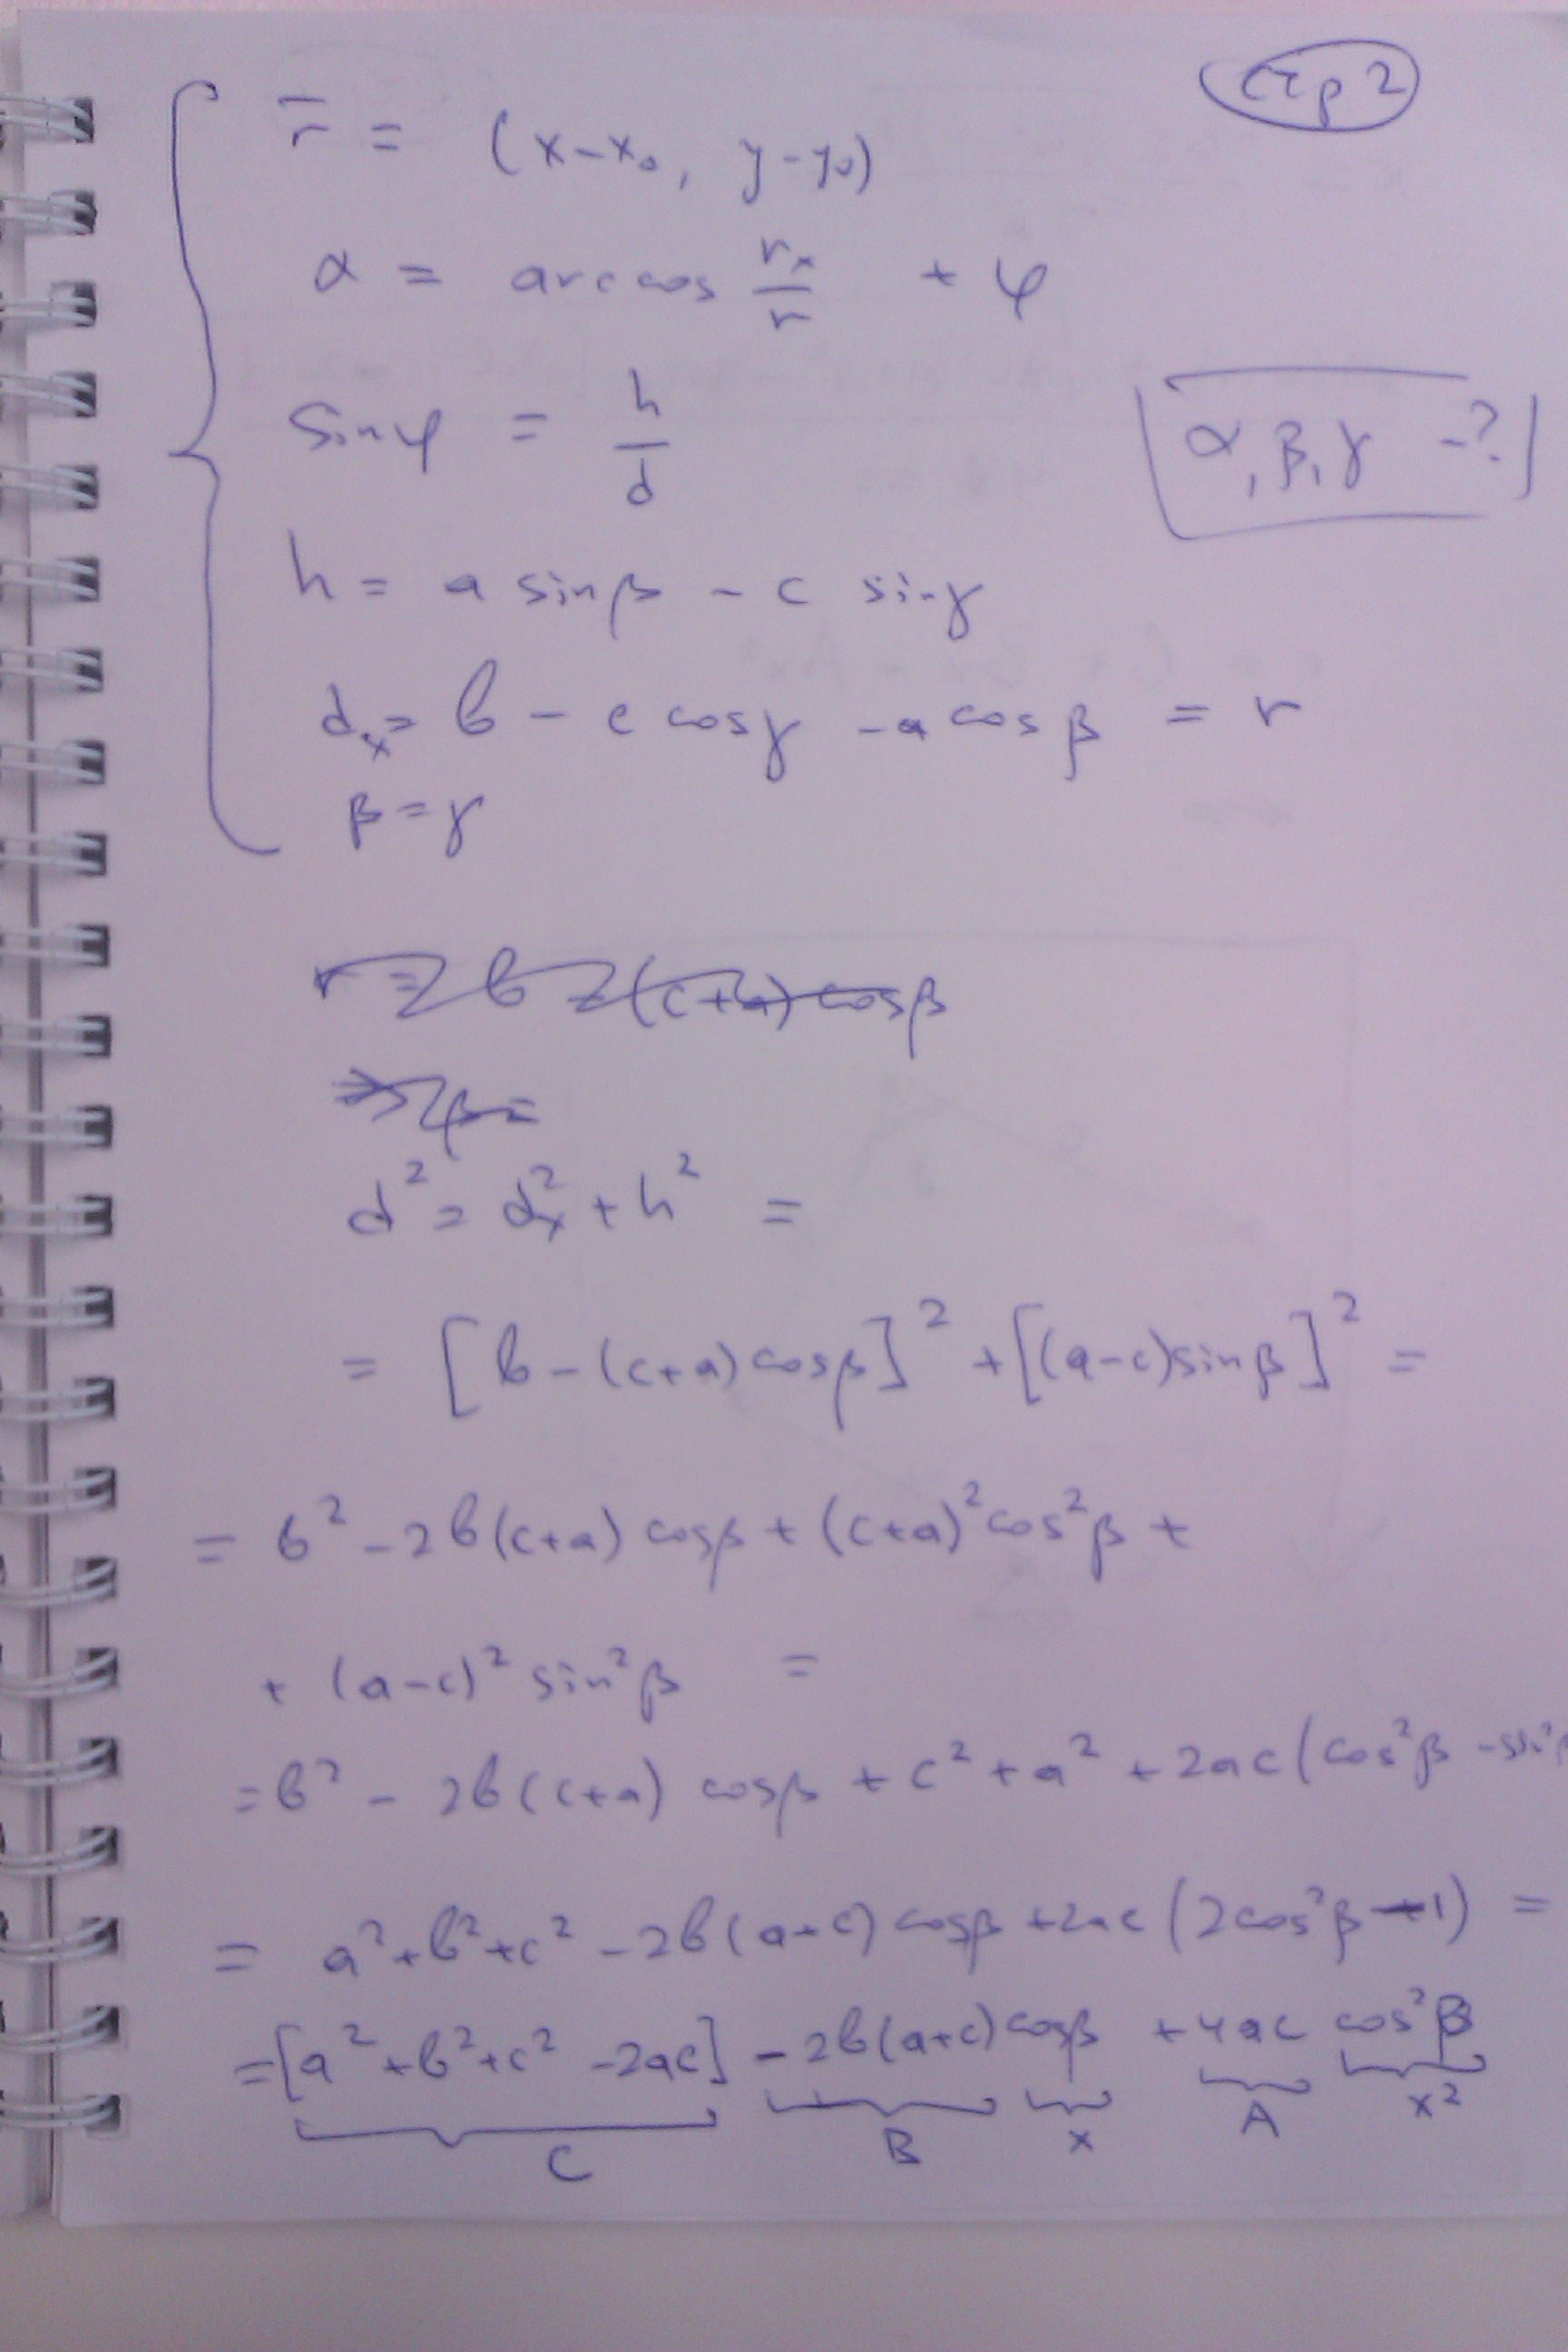 стр 2
r̄ = (x-x₀, y-y₀)
α = arccos rₓ/r + φ
sin φ = h/d
α, β, γ -?
h = a sin β - c sin γ
dₓ = b - c cos γ - a cos β = r
β = γ
r = b - (c+a) cos β
⇒ β =
d² = dₓ² + h² =
= [b - (c+a) cos β]² + [(a-c) sin β]² =
= b² - 2b(c+a) cos β + (c+a)² cos² β +
+ (a-c)² sin² β =
= b² - 2b(c+a) cos β + c² + a² + 2ac (cos² β - sin² β
= a² + b² + c² - 2b(a+c) cos β + 2ac (2cos² β - 1) =
= [a² + b² + c² - 2ac] - 2b(a+c) cos β + 4ac cos² β
C B x A x²